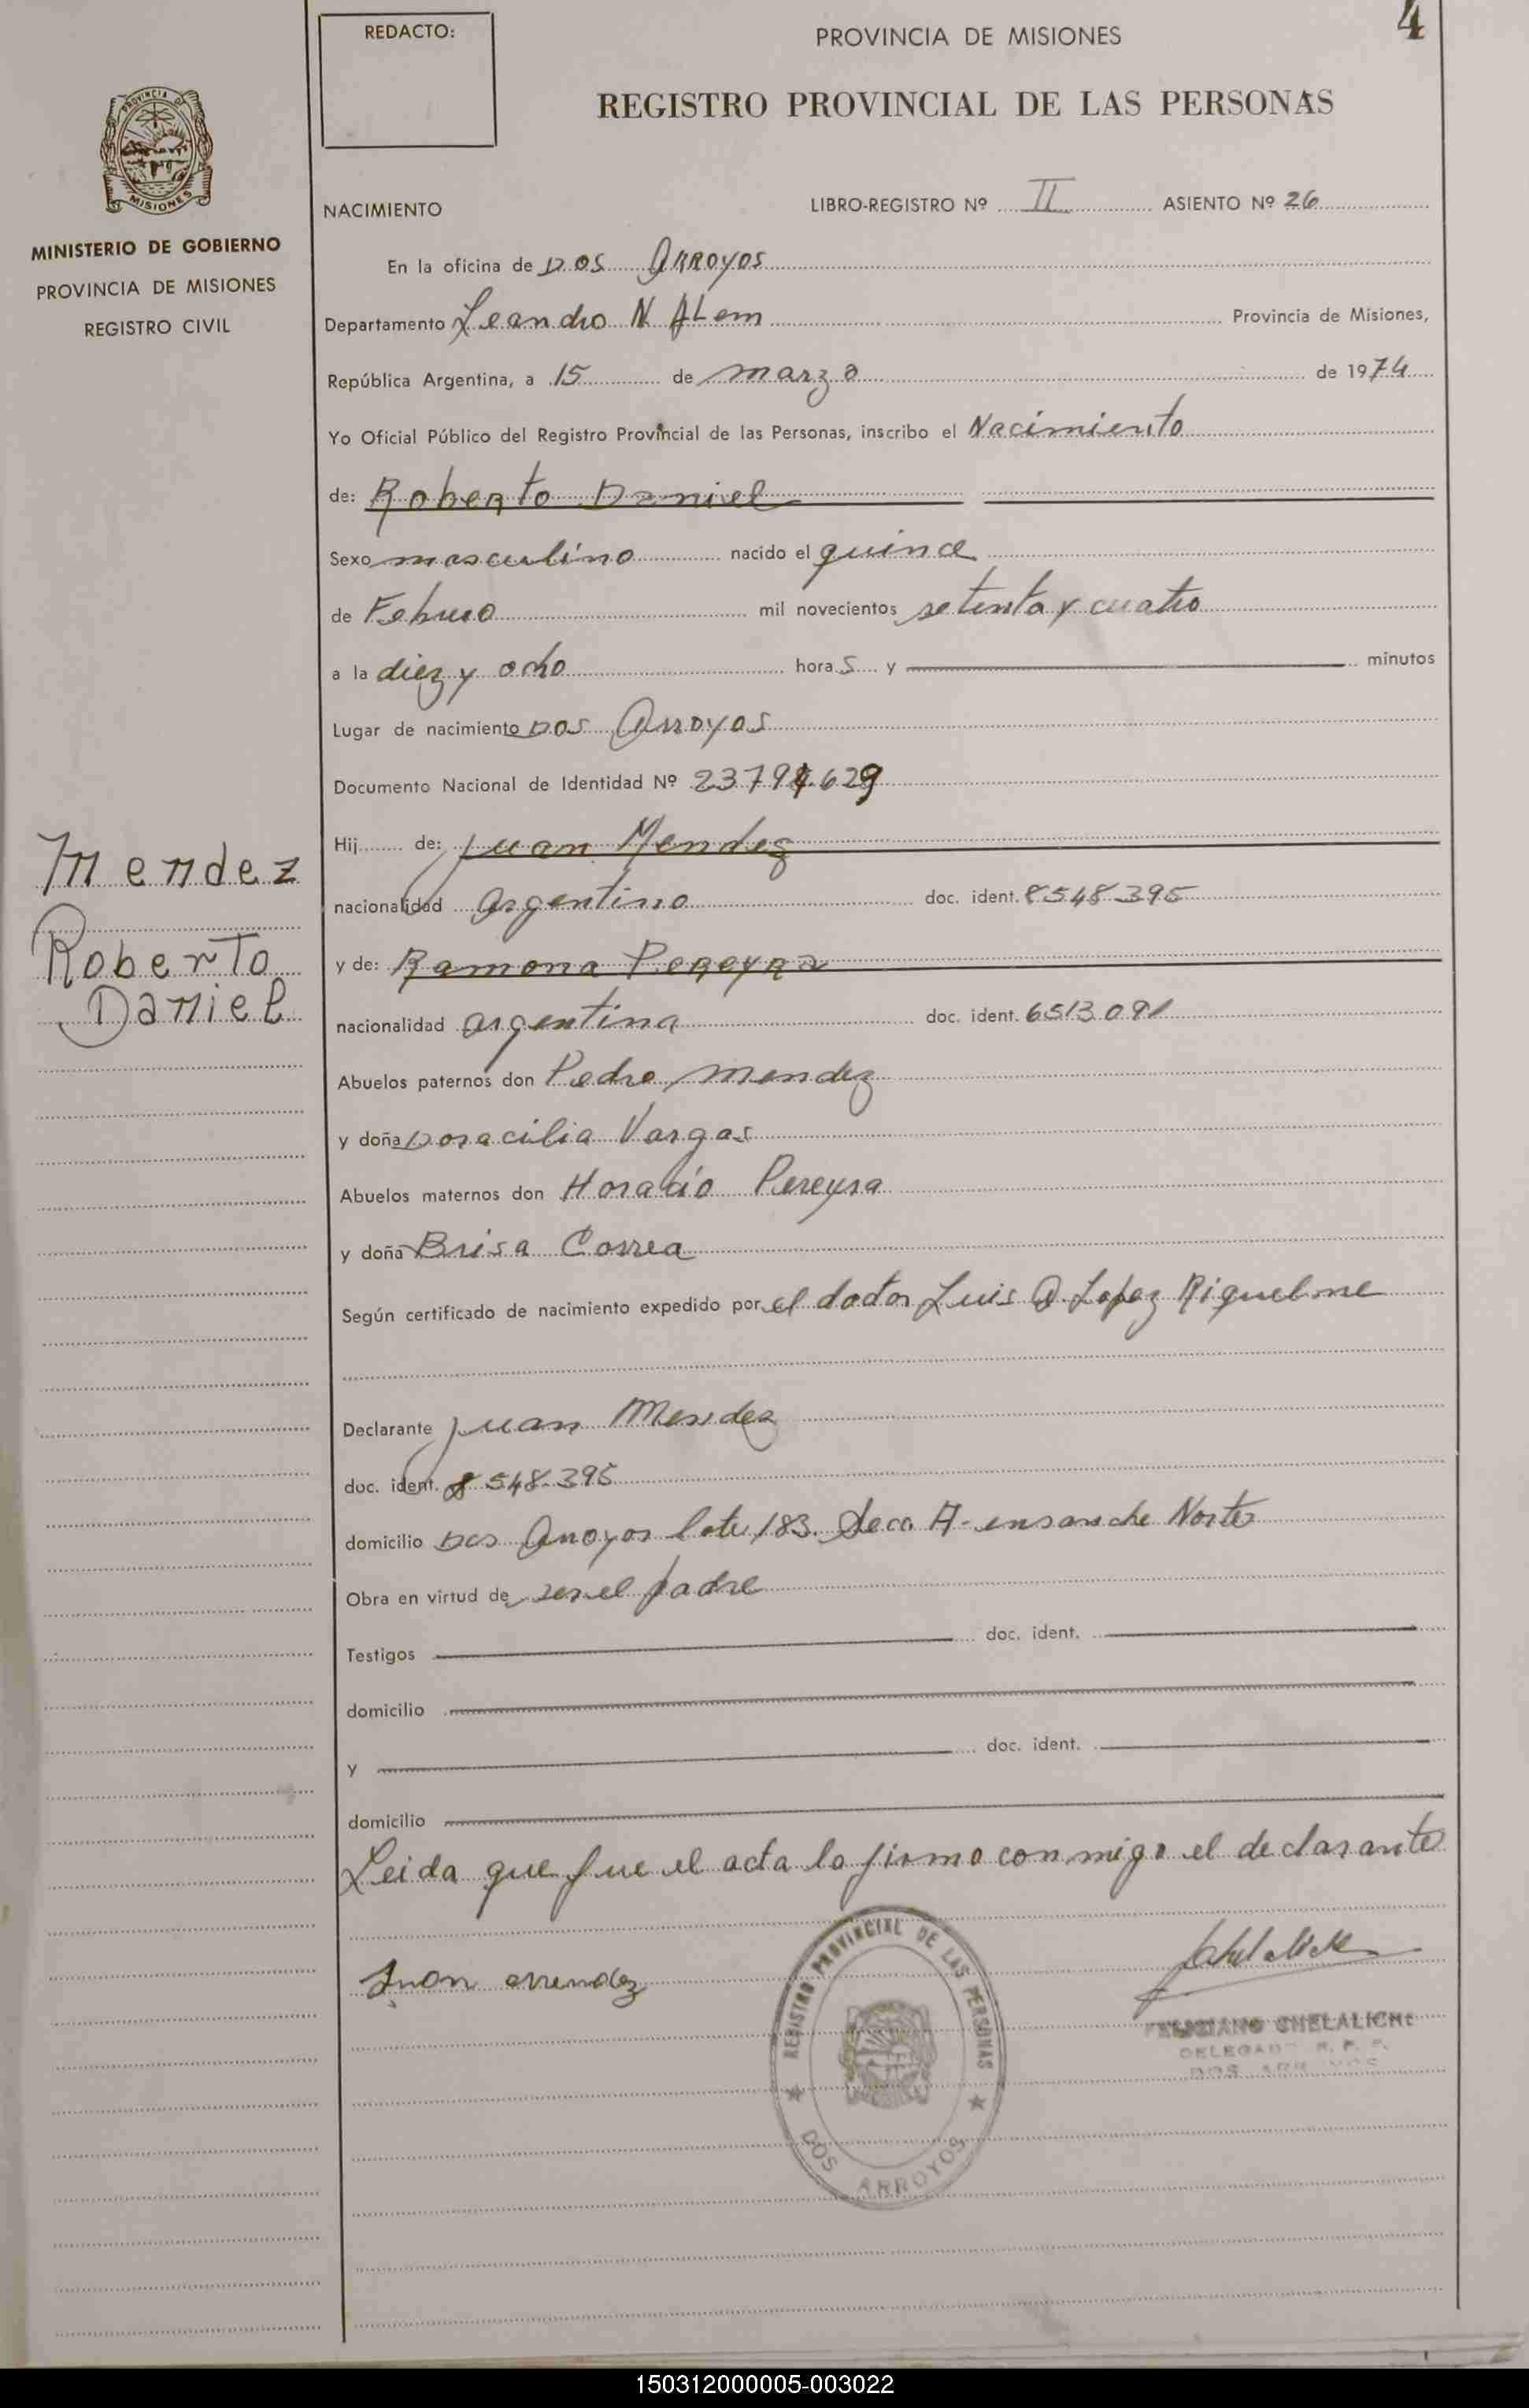 4
REDACTO:
PROVINCIA DE MISIONES
REGISTRO PROVINCIAL DE LAS PERSONAS
PROVINCIA DE
MISIONES
MINISTERIO DE GOBIERNO
PROVINCIA DE MISIONES
REGISTRO CIVIL
NACIMIENTO LIBRO-REGISTRO Nº II ASIENTO Nº 26
En la oficina de DOS ARROYOS
Departamento Leandro N ALem Provincia de Misiones,
República Argentina, a 15 de marzo de 1974
Yo Oficial Público del Registro Provincial de las Personas, inscribo el Nacimiento
de: Roberto Daniel
Sexo masculino nacido el quince
de Febrero mil novecientos setenta y cuatro
a la diez y ocho horas y minutos
Lugar de nacimiento Dos Arroyos
Documento Nacional de Identidad Nº
Hij de: Juan Mendez
Mendez
Roberto
Daniel
nacionalidad argentino doc. ident. 8548395
y de: Ramona Pereyra
nacionalidad argentina doc. ident. 6513091
Abuelos paternos don Pedro Mendez
y doña Doracilia Vargas
Abuelos maternos don Horacio Pereyra
y doña Brisa Correa
Según certificado de nacimiento expedido por el doctor Luis Lopez Riquelme
Declarante Juan Mendez
doc. ident. 8548.395
domicilio Dos Arroyos lote 183. Secc A-ensanche Norte
Obra en virtud de ser el padre
Testigos doc. ident.
domicilio
y doc. ident.
domicilio
Leida que fue el acta la firma conmigo el declarante
Juan Mendez
REGISTRO PROVINCIAL DE LAS PERSONAS
DOS ARROYOS
FELICIANO CHELALICHE
DELEGADO R. P. P.
DOS ARROYOS
150312000005-003022